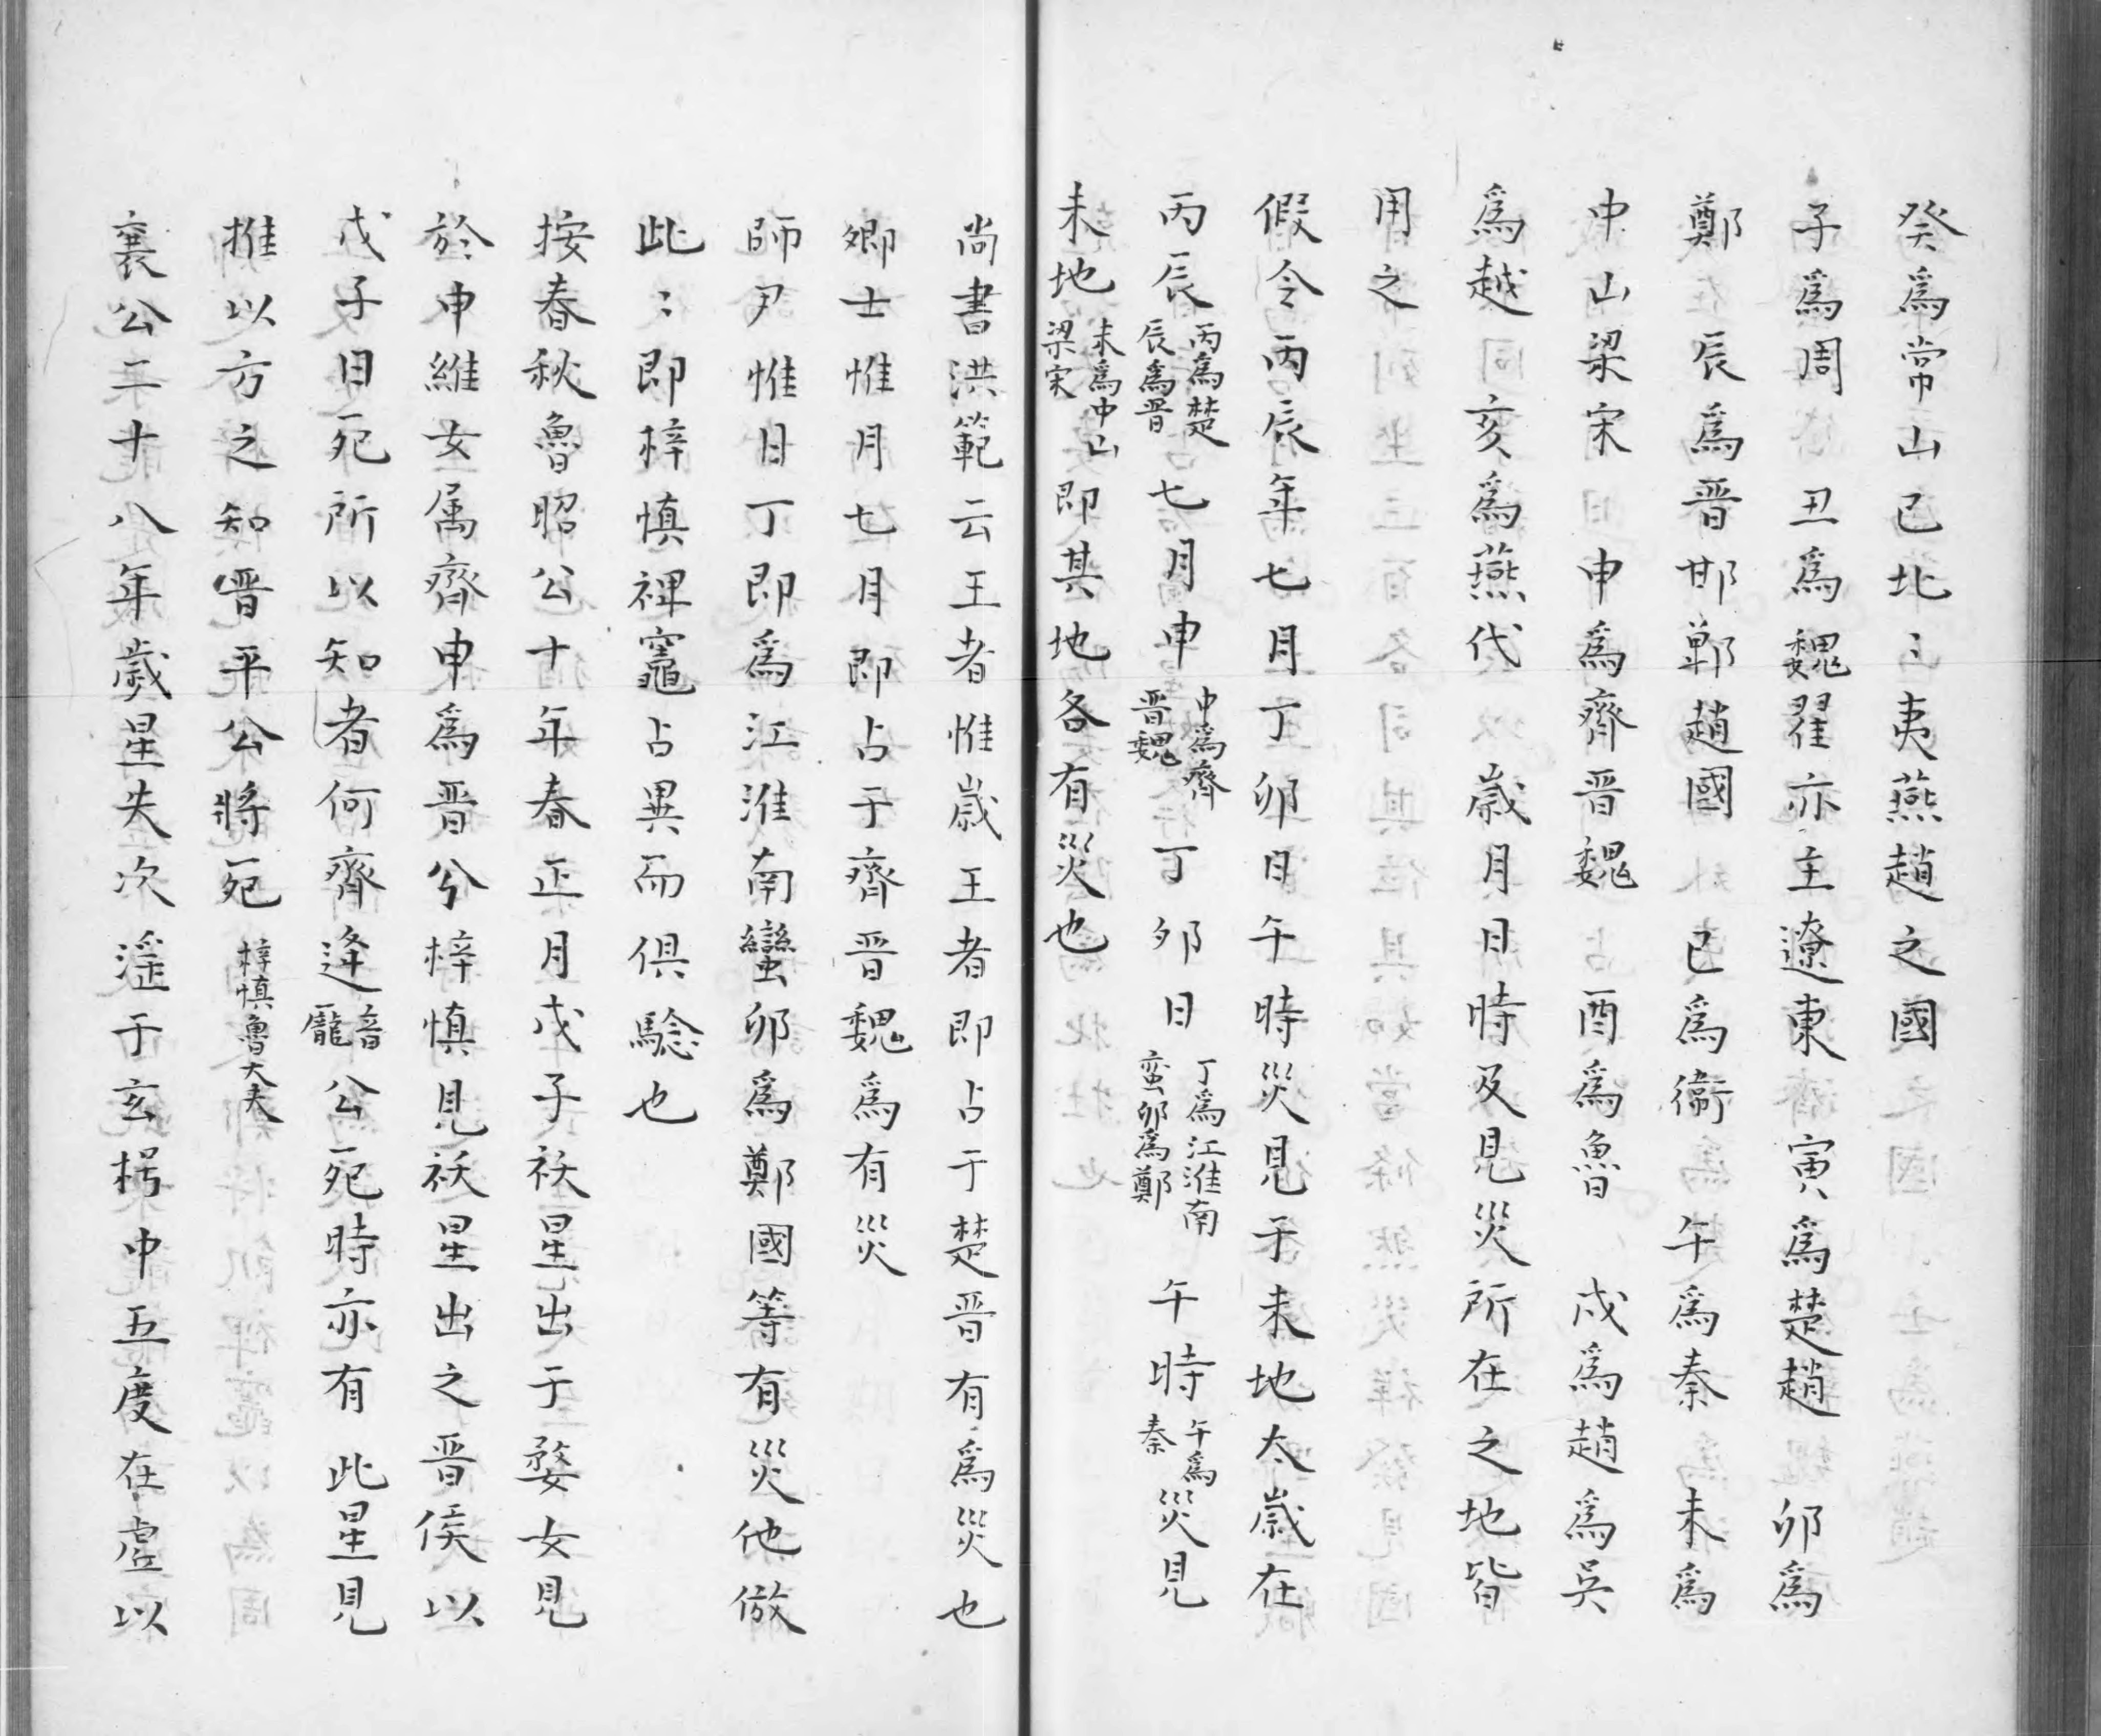 癸爲常山已北〻夷燕趙之國
子爲周 丑爲魏翟亦主遼東 寅爲楚趙 卯爲
鄭 辰爲晋邯鄲趙國 巳爲衞 午爲秦 未爲
中山梁宋 申爲齊晋魏 酉爲魯 戌爲趙爲吳
爲越 亥爲燕代 歲月日時及見災所在之地皆
用之
假令丙辰年七月丁卯日午時災見于未地太歲在
丙辰丙爲楚辰爲晋七月申申爲齊晋魏丁卯日丁爲江淮南蛮卯爲鄭午時午爲秦災見
未地未爲中山梁宋即其地各有災也
尚書洪範云王者惟歲王者即占于楚晋有爲災也
卿士惟月七月即占于齊晋魏爲有災
師尹惟日丁即爲江淮南蠻卯爲鄭國等有災他倣
此〻即梓慎裨竈占異而俱驗也
按春秋魯昭公十年春正月戊子祅星出于婺女見
於申維女属齊申爲晋兮梓慎見祅星出之晋侯以
戊子日死所以知者何齊逄音龐公死時亦有此星見
推以方之知晋平公將死梓慎魯大夫
襄公二十八年歲星失次滛于玄枵中五度在虛以